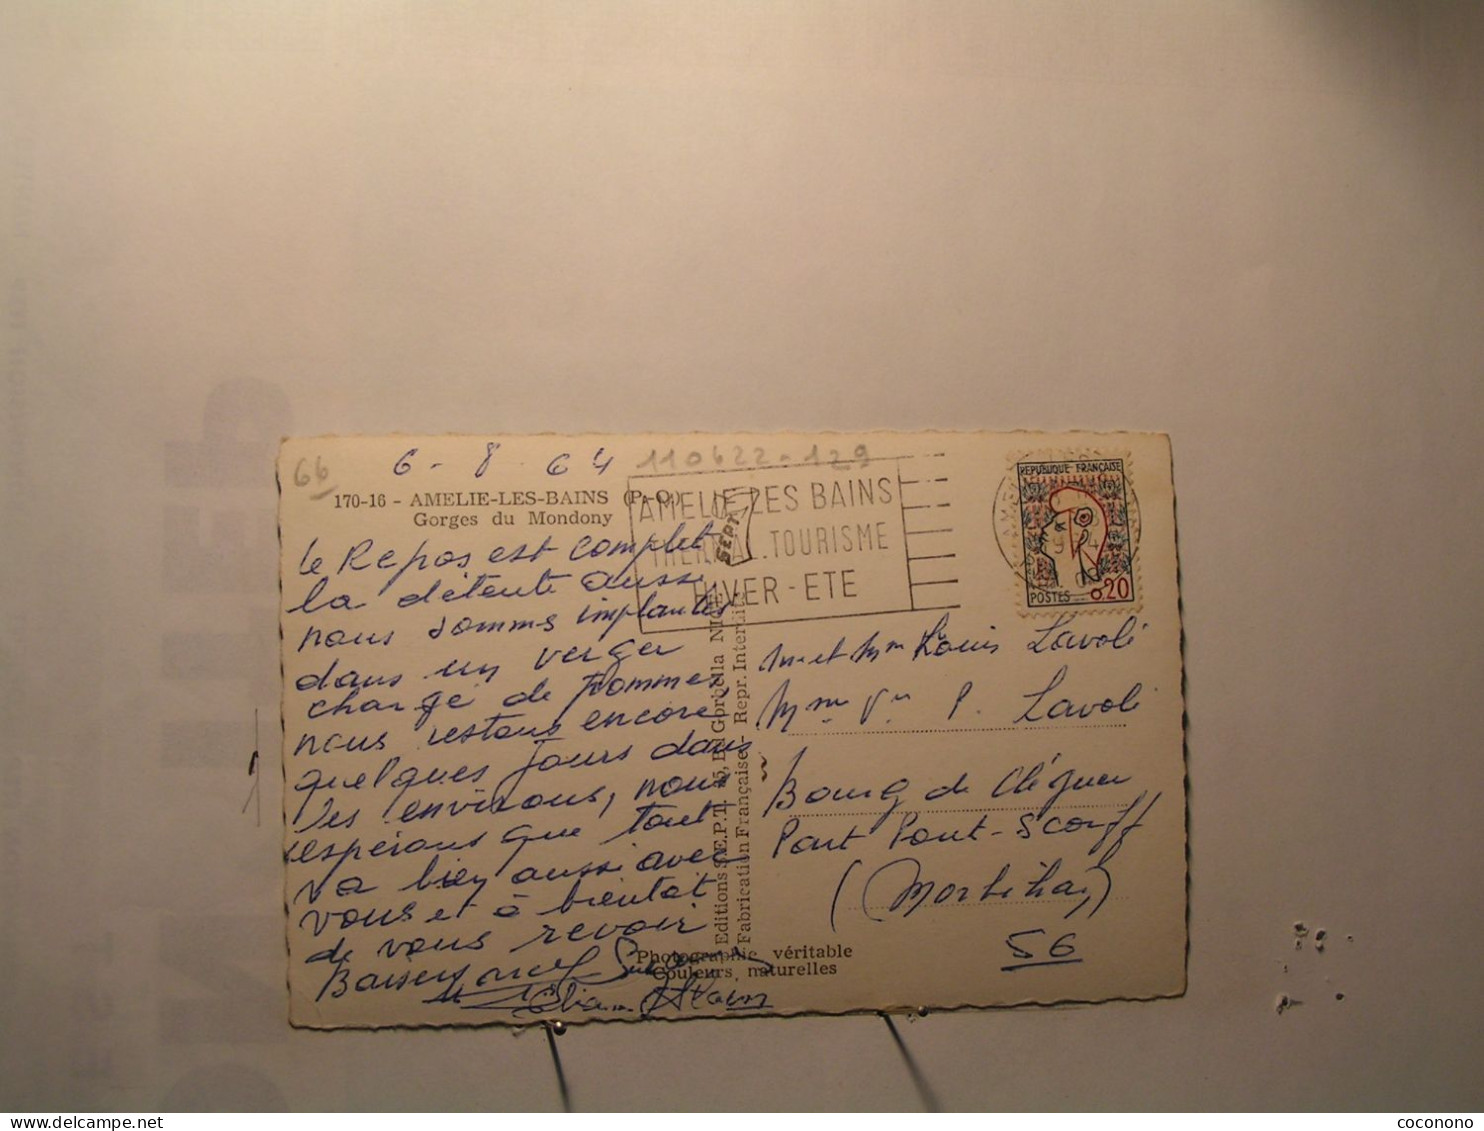 66
6-8-64
110622-129
170-16 - AMELIE-LES-BAINS (P.-O.)
Gorges du Mondony
AMELIE LES BAINS
THERMAL.TOURISME
HIVER-ETE
SEPT
REPUBLIQUE FRANÇAISE
POSTES 0.20
Le Repos est complet
la détente aussi
nous sommes implantés
dans un verger
chargé de pommes,
nous restons encore
quelques jours dans
les environs, nous
espérons que tout
va bien aussi avec
vous et à bientot
de vous revoir
Baisers
Alain
Editions S.E.P.T. 35, Bd Gorbella NICE
Fabrication Française - Repr. Interdite
Photographie véritable
Couleurs naturelles
M et Mme Louis Lavolé
Mme Vve P. Lavolé
Bourg de Cléguer
Part Pont-Scorff
(Morbihan)
56
coconono